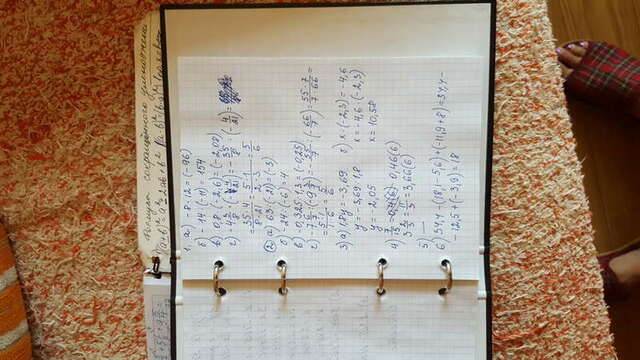 Формула сокращённого умножения
(a+b)²=a²±2ab+b²
1. а) -8·12=(-96)
б) -14·(-11)=154
в) 0,8·(-2,6)=(-2,08)
г) -4 3/8·(-4/21)=-35/8·(-4/21)=
=35·4/8·21=5·1/2·3=5/6
2 а) 63:(-21)=(-3)
б) -24:(-6)=4
в) -0,325:1,3=(-0,25)
г) -7 6/7:(-9 3/7)=-55/7:(-66/7)=55·7/7·66=
=5·1/1·6=5/6
3) а) 1,8y=-3,69 б) x:(-2,3)=-4,6
y=-3,69:1,8 x=-4,6·(-2,3)
y=-2,05 x=10,58
4) 7/15=0,46(6)
3 2/3=11/3=3,66(6)
5) —
6) 34,4-(18,1-5,6)+(-11,9+8)=34,4-
-12,5+(-3,9)=18